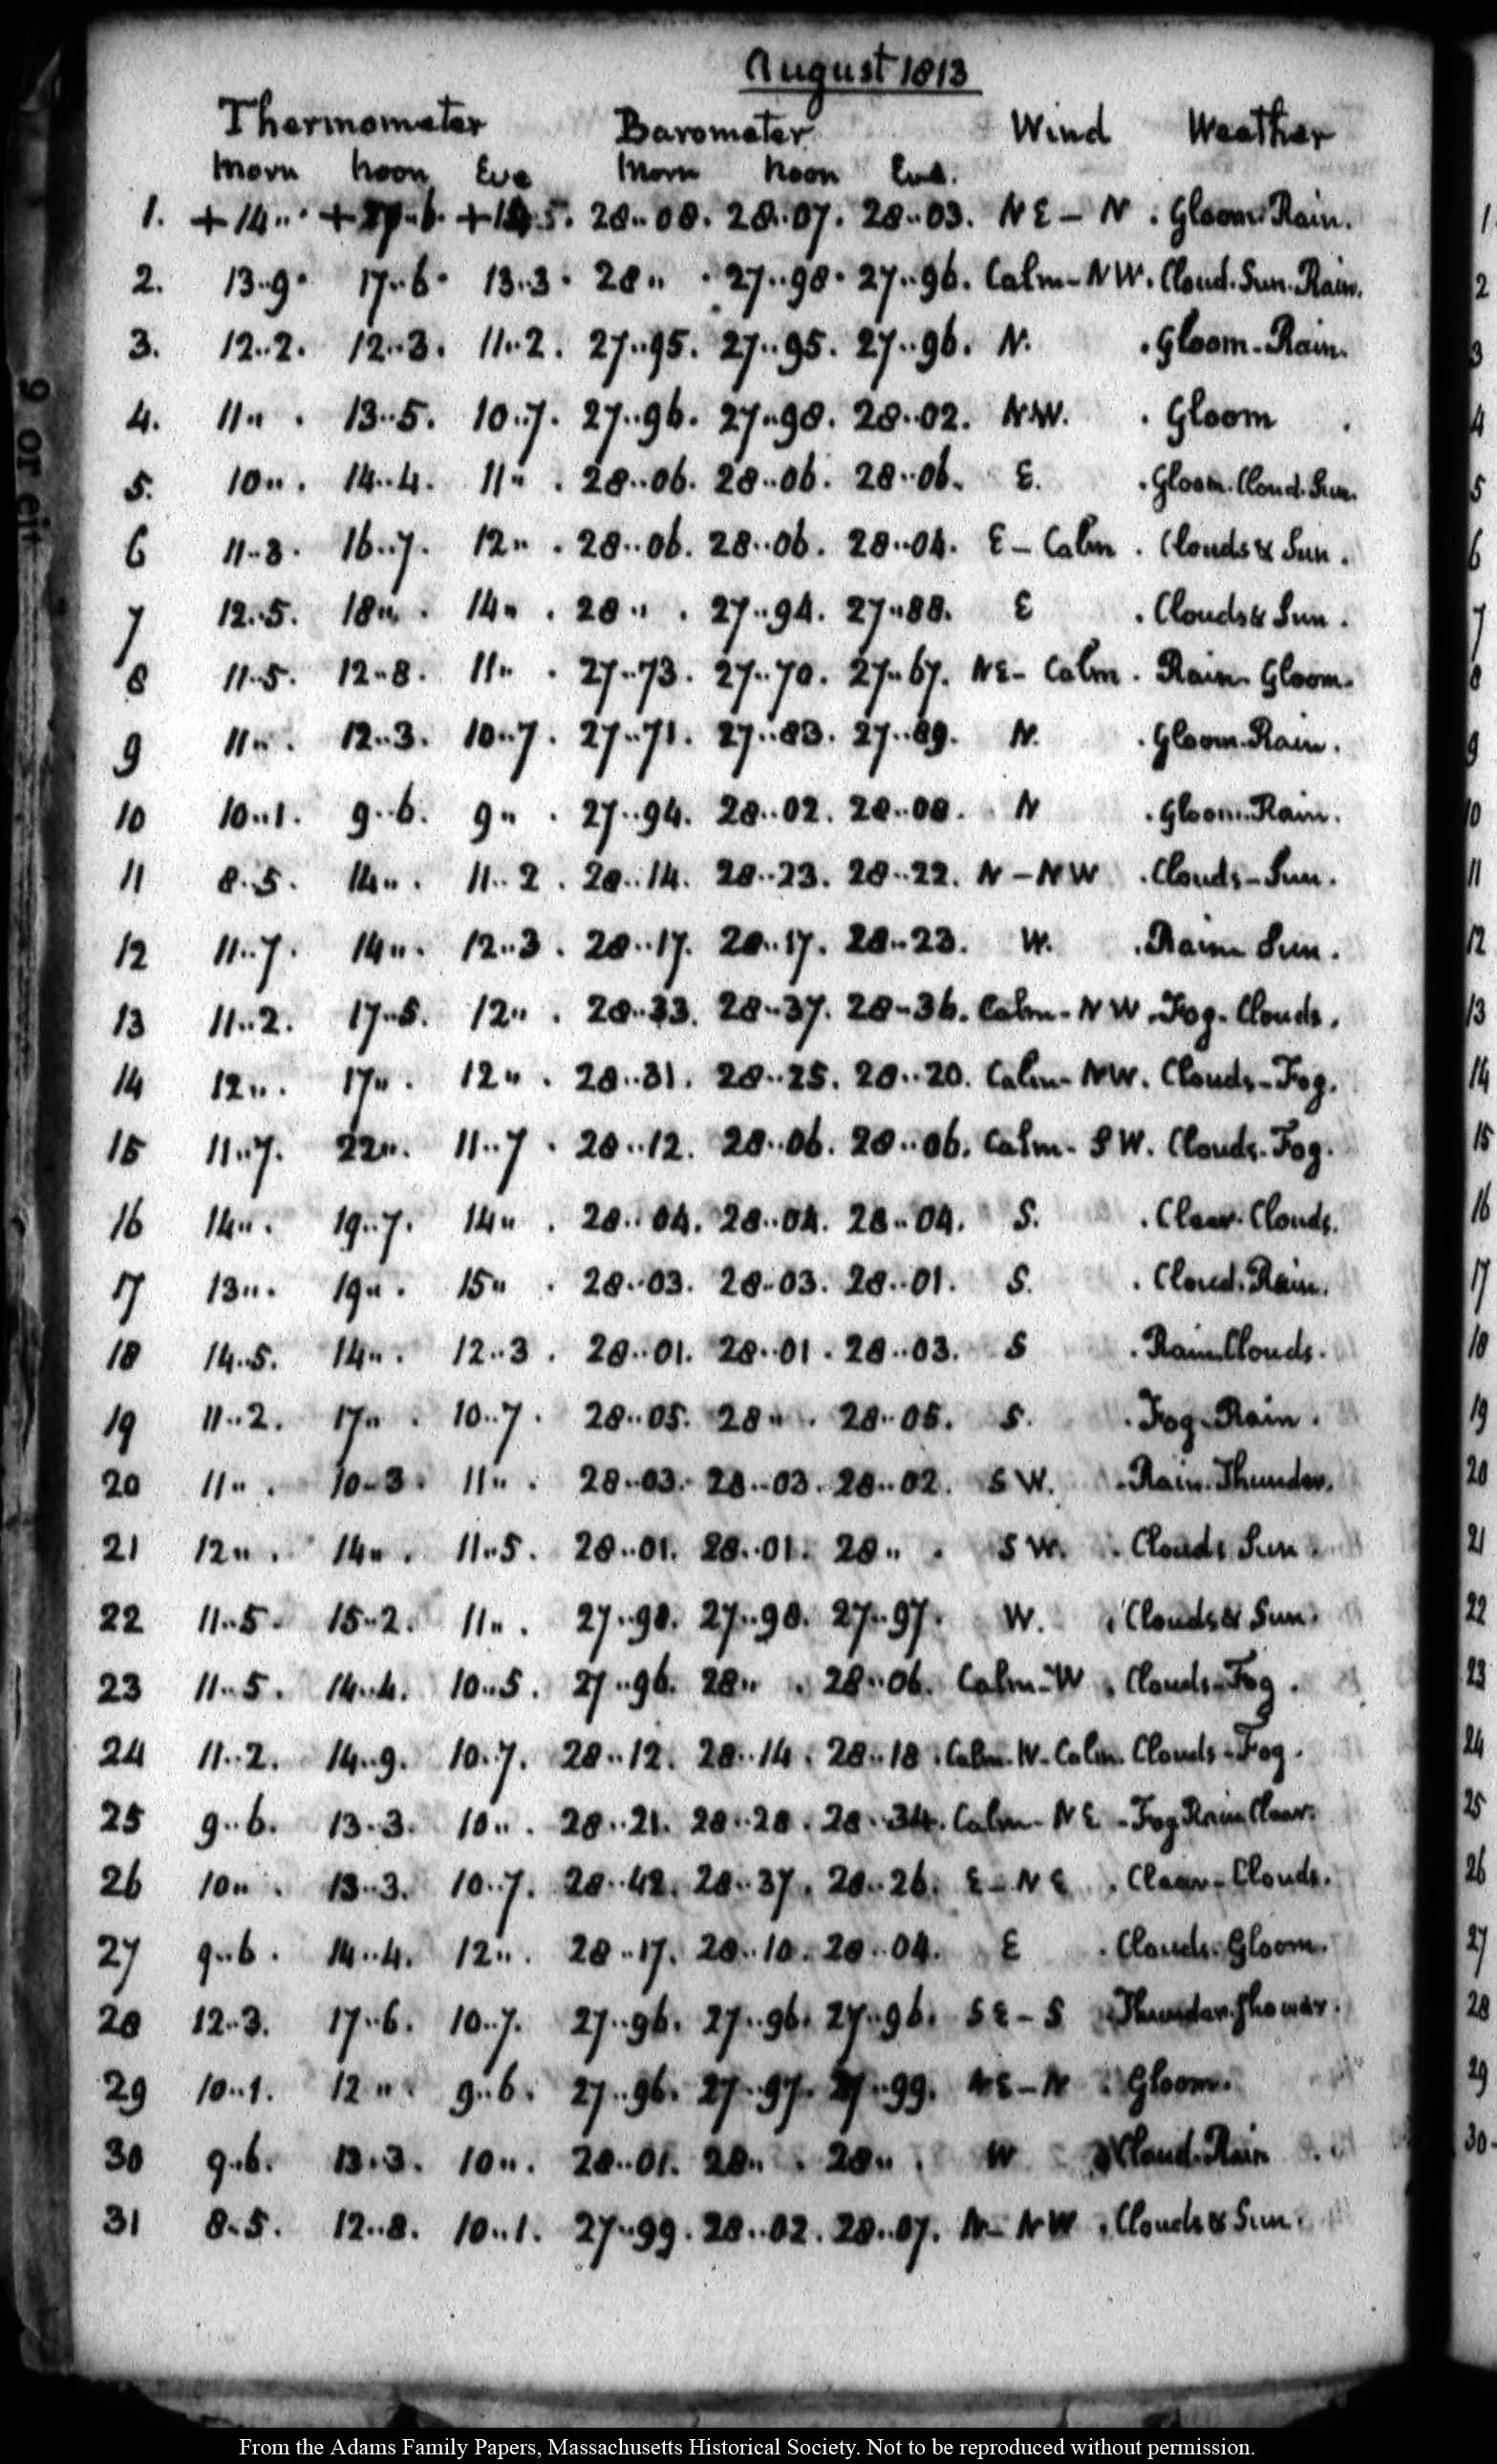 August 1813
Thermometer Barometer Wind Weather
Morn Noon Eve Morn Noon Eve.
1. +14.. . + +  5. 28..08. 28..07. 28..03. NE – N . Gloom. Rain.
2. 13..9. 17..6. 13..3. 28.. . 27..98. 27..96. Calm – NW. Cloud. Sun. Rain.
3. 12..2. 12..3. 11..2. 27..95. 27..95. 27..96. N. . Gloom – Rain.
4. 11.. . 13..5. 10..7. 27..96. 27..98. 28..02. NW. . Gloom .
5. 10.. . 14..4. 11.. . 28..06. 28..06. 28..06. E. . Gloom. Cloud. Sun.
6 11..3. 16..7. 12.. . 28..06. 28..06. 28..04. E – Calm . Clouds & Sun.
7 12..5. 18.. . 14.. . 28.. . 27..94. 27..88. E . Clouds & Sun.
8 11..5. 12..8. 11.. . 27..73. 27..70. 27..67. NE – Calm . Rain Gloom.
9 11.. . 12..3. 10..7. 27..71. 27..83. 27..89. N. . Gloom. Rain.
10 10..1. 9..6. 9.. . 27..94. 28..02. 28..08. N . Gloom. Rain.
11 8..5. 14.. . 11..2. 28..14. 28..23. 28..22. N – NW . Clouds – Sun.
12 11..7. 14.. . 12..3. 28..17. 28..17. 28..23. W. . Rain Sun.
13 11..2. 17..5. 12.. . 28..33. 28..37. 28..36. Calm – NW. Fog – Clouds.
14 12.. . 17.. . 12.. . 28..31. 28..25. 28..20. Calm – NW. Clouds – Fog.
15 11..7. 22.. . 11..7. 28..12. 28..06. 28..06. Calm – SW. Clouds – Fog.
16 14.. . 19..7. 14.. . 28..04. 28..04. 28..04. S. . Clear. Clouds.
17 13.. . 19.. . 15.. . 28..03. 28..03. 28..01. S. . Cloud. Rain.
18 14..5. 14.. . 12..3. 28..01. 28..01. 28..03. S . Rain. Clouds.
19 11..2. 17.. . 10..7. 28..05. 28.. . 28..05. S. . Fog – Rain.
20 11.. . 10..3. 11.. . 28..03. 28..03. 28..02. SW. . Rain. Thunder.
21 12.. . 14.. . 11..5. 28..01. 28..01. 28.. . SW. . Clouds Sun.
22 11..5. 15..2. 11.. . 27..98. 27..98. 27..97. W. . Clouds & Sun.
23 11..5. 14..4. 10..5. 27..96. 28.. . 28..06. Calm – W . Clouds – Fog.
24 11..2. 14..9. 10..7. 28..12. 28..14. 28..18. Calm. W. Calm. Clouds – Fog.
25 9..6. 13..3. 10.. . 28..21. 28..28. 28..34. Calm – NE – Fog Rain Clear.
26 10.. . 13..3. 10..7. 28..42. 28..37. 28..26. E – NE . Clear – Clouds.
27 9..6. 14..4. 12.. . 28..17. 28..10. 28..04. E . Clouds. Gloom.
28 12..3. 17..6. 10..7. 27..96. 27..96. 27..96. SE – S . Thunder. Shower.
29 10..1. 12.. . 9..6. 27..96. 27..97. 27..99. NE – N . Gloom.
30 9..6. 13..3. 10.. . 28..01. 28.. . 28.. . W Cloud. Rain
31 8..5. 12..8. 10..1. 27..99. 28..02. 28..07. N – NW . Clouds & Sun.
From the Adams Family Papers, Massachusetts Historical Society. Not to be reproduced without permission.